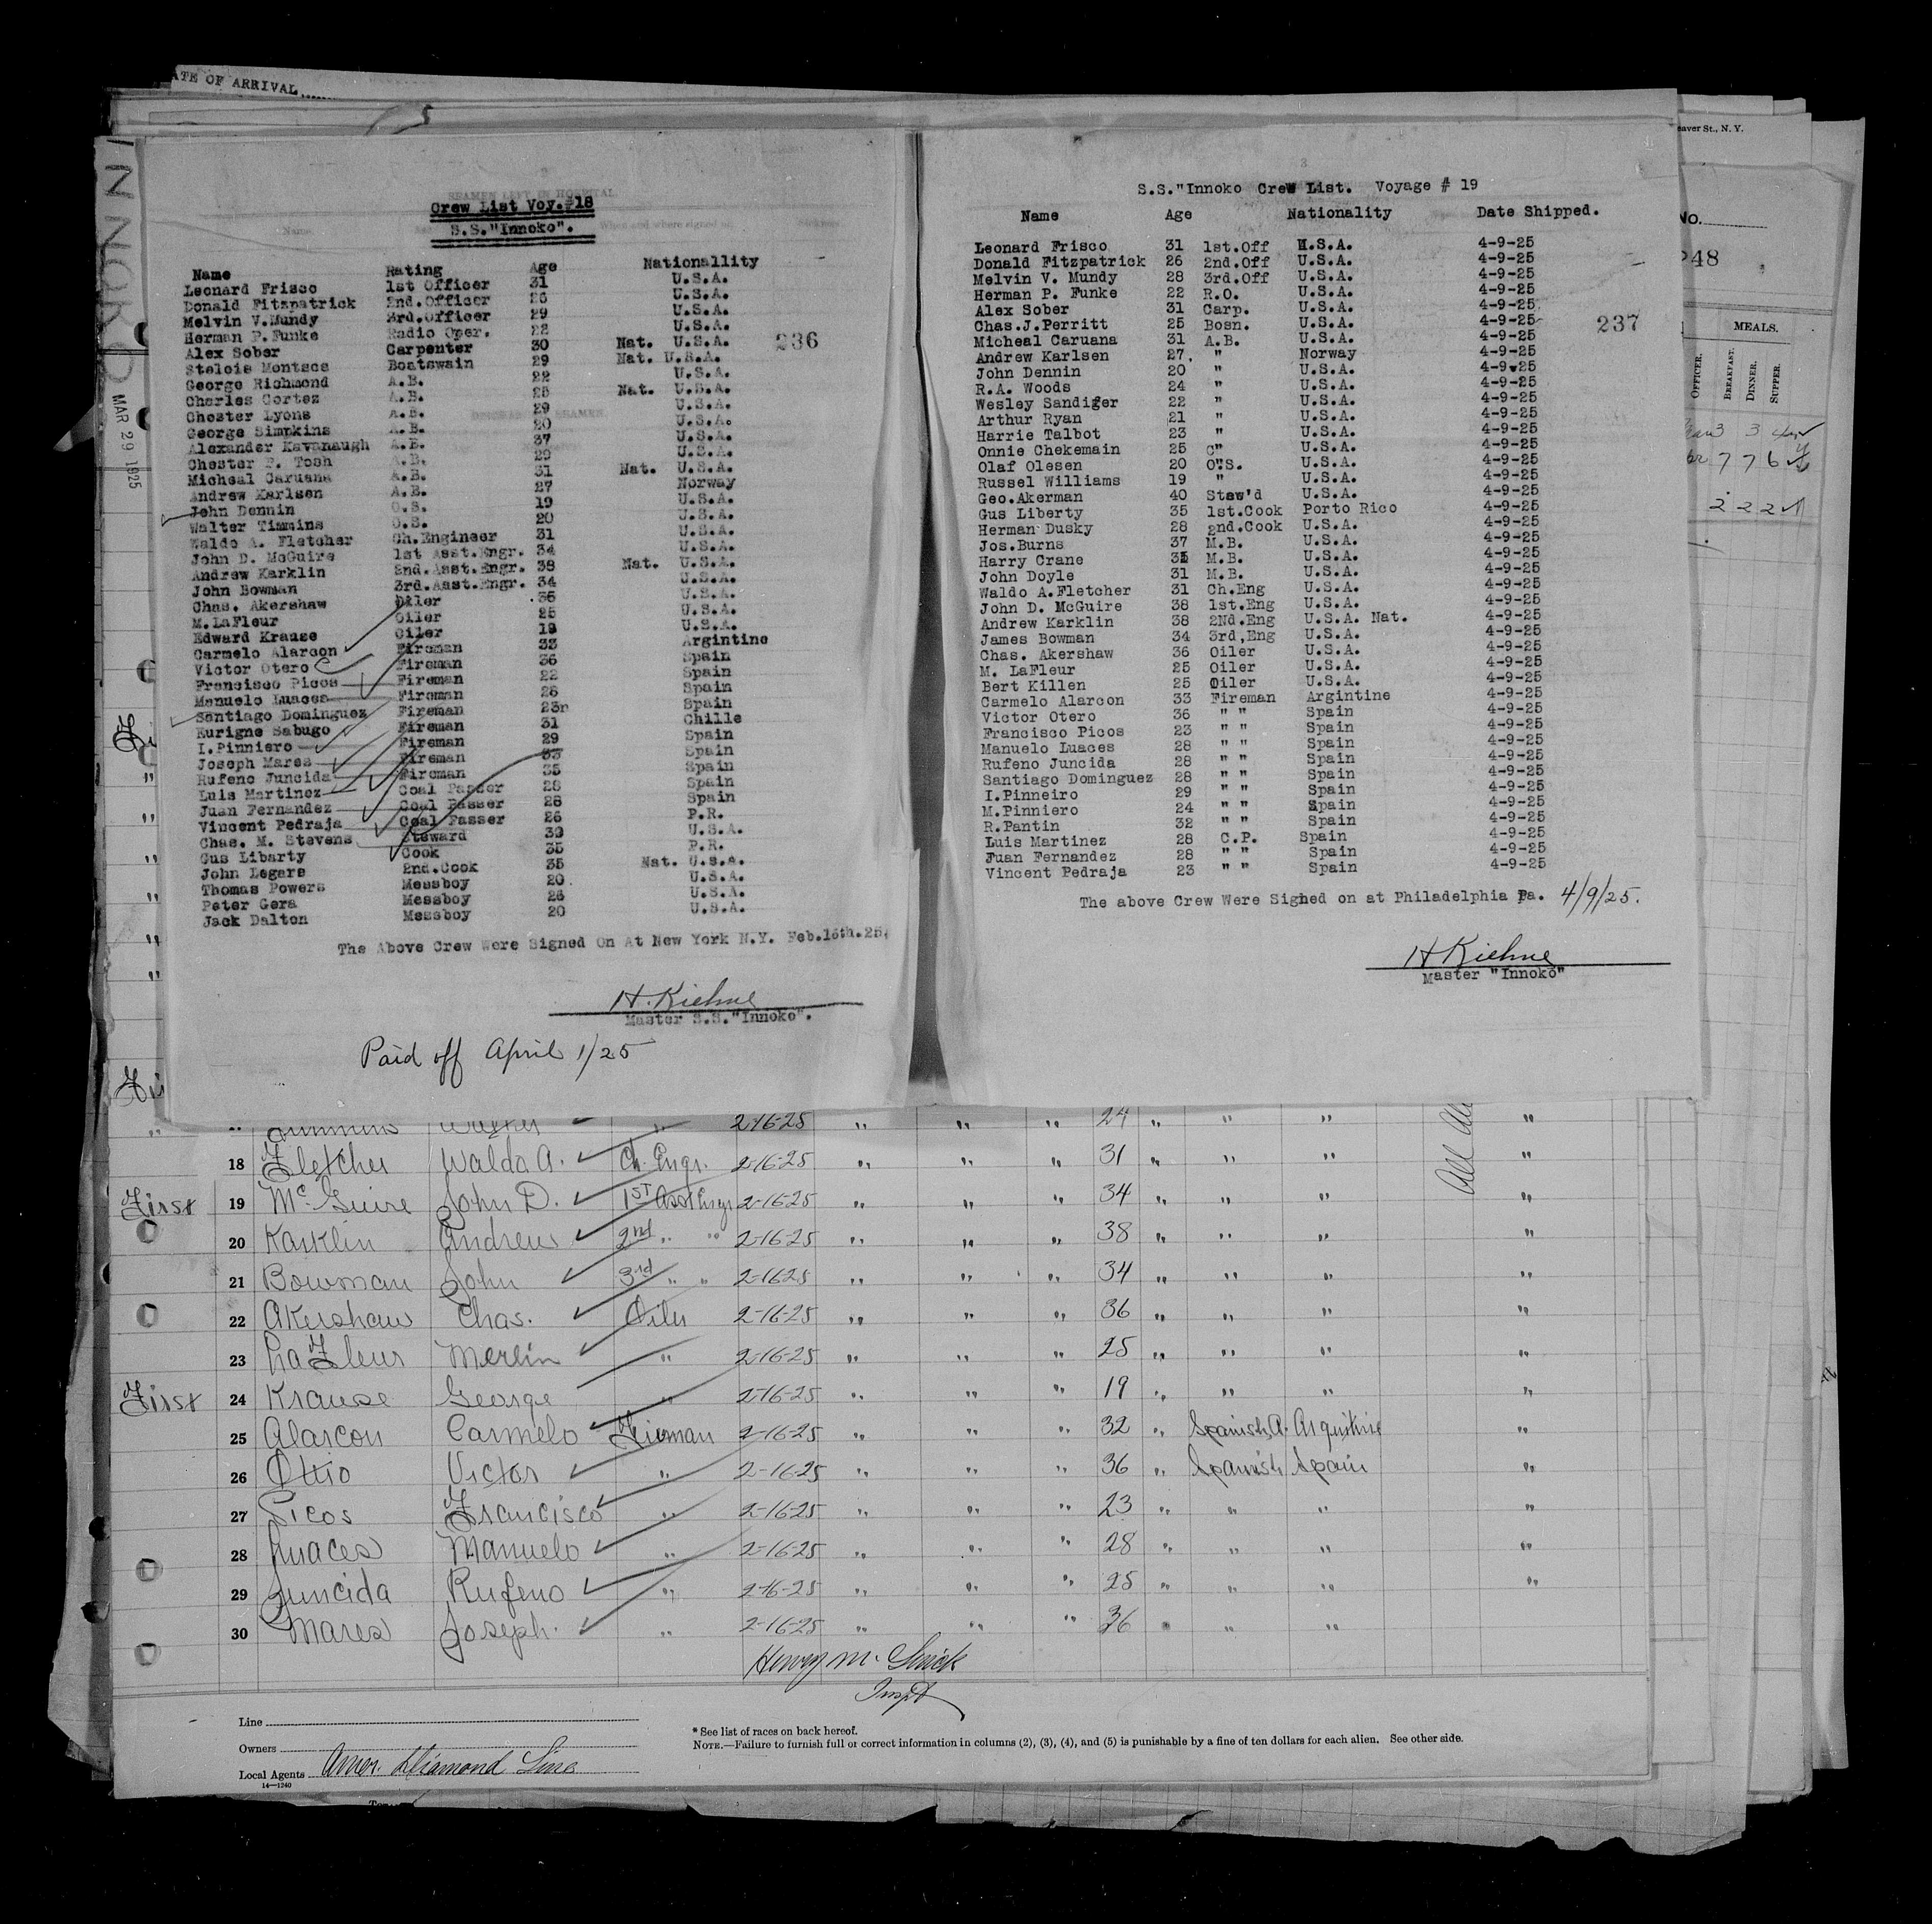 ATE OF ARRIVAL
eaver St., N. Y.
INNOKO
MAR 29 1925
SEAMEN LEFT IN HOSPITAL
Crew List Voy.#18
S.S."Innoko".
Name Rating Age Nationallity
Leonard Frisco 1st Officer 31 U.S.A.
Donald Fitzpatrick 2nd.Officer 26 U.S.A.
Melvin V.Mundy 3rd.Officer 29 U.S.A.
Herman P.Funke Radio Oper. 22 U.S.A.
Alex Sober Carpenter 30 Nat. U.S.A.
236
Stelois Montsos Boatswain 29 Nat. U.S.A.
George Richmond A.B. 22 U.S.A.
Charles Cortez A.B. 25 Nat. U.S.A.
Chester Lyons A.B. 29 U.S.A.
George Simpkins A.B. 20 U.S.A.
Alexander Kavanaugh A.B. 37 U.S.A.
Chester F. Tosh A.B. 29 U.S.A.
Micheal Caruana A.B. 31 Nat. U.S.A.
Andrew Karlsen A.B. 27 Norway
John Dennin O.S. 19 U.S.A.
Walter Timmins O.S. 20 U.S.A.
Waldo A. Fletcher Ch.Engineer 31 U.S.A.
John D. McGuire 1st Asst.Engr. 34 U.S.A.
Andrew Karklin 2nd.Asst.Engr. 38 Nat. U.S.A.
John Bowman 3rd.Asst.Engr. 34 U.S.A.
Chas. Akershaw Oiler 36 U.S.A.
M.LaFleur Oiler 25 U.S.A.
Edward Krause Oiler 19 U.S.A.
Carmelo Alarcon Fireman 33 Argintine
Victor Otero Fireman 36 Spain
Francisco Picos Fireman 22 Spain
Manuelo Luaces Fireman 28 Spain
Santiago Dominguez Fireman 23n Spain
Eurigne Sabugo Fireman 31 Chille
I.Pinniero Fireman 29 Spain
Joseph Mares Fireman 33 Spain
Rufeno Juncida Fireman 35 Spain
Luis Martinez Coal Passer 28 Spain
Juan Fernandez Coal Passer 28 Spain
Vincent Pedraja Coal Passer 26 P.R.
Chas. M. Stevens Steward 39 U.S.A.
Gus Libarty Cook 35 P.R.
John Legere 2nd.Cook 35 Nat. U.S.A.
Thomas Powers Messboy 20 U.S.A.
Peter Gera Messboy 26 U.S.A.
Jack Dalton Messboy 20 U.S.A.
The Above Crew Were Signed On At New York N.Y. Feb.16th.25.
H. Kiehne
Master S.S."Innoko".
Paid off April 1/25
S.S."Innoko Crew List. Voyage # 19
Name Age Nationality Date Shipped.
Leonard Frisco 31 1st.Off U.S.A. 4-9-25
Donald Fitzpatrick 26 2nd.Off U.S.A. 4-9-25
Melvin V. Mundy 28 3rd.Off U.S.A. 4-9-25
Herman P. Funke 22 R.O. U.S.A. 4-9-25
Alex Sober 31 Carp. U.S.A. 4-9-25
Chas.J.Perritt 25 Bosn. U.S.A. 4-9-25
237
Micheal Caruana 31 A.B. U.S.A. 4-9-25
Andrew Karlsen 27. " Norway 4-9-25
John Dennin 20 " U.S.A. 4-9-25
R.A. Woods 24 " U.S.A. 4-9-25
Wesley Sandifer 22 " U.S.A. 4-9-25
Arthur Ryan 21 " U.S.A. 4-9-25
Harrie Talbot 23 " U.S.A. 4-9-25
Onnie Chekemain 25 " U.S.A. 4-9-25
Olaf Olesen 20 O.S. U.S.A. 4-9-25
Russel Williams 19 " U.S.A. 4-9-25
Geo.Akerman 40 Stew'd U.S.A. 4-9-25
Gus Liberty 35 1st.Cook Porto Rico 4-9-25
Herman Dusky 28 2nd.Cook U.S.A. 4-9-25
Jos.Burns 37 M.B. U.S.A. 4-9-25
Harry Crane 31 M.B. U.S.A. 4-9-25
John Doyle 31 M.B. U.S.A. 4-9-25
Waldo A.Fletcher 31 Ch.Eng U.S.A. 4-9-25
John D. McGuire 38 1st.Eng U.S.A. 4-9-25
Andrew Karklin 38 2Nd.Eng U.S.A. Nat. 4-9-25
James Bowman 34 3rd,Eng U.S.A. 4-9-25
Chas. Akershaw 36 Oiler U.S.A. 4-9-25
M. LaFleur 25 Oiler U.S.A. 4-9-25
Bert Killen 25 Oiler U.S.A. 4-9-25
Carmelo Alarcon 33 Fireman Argintine 4-9-25
Victor Otero 36 " " Spain 4-9-25
Francisco Picos 23 " " Spain 4-9-25
Manuelo Luaces 28 " " Spain 4-9-25
Rufeno Juncida 28 " " Spain 4-9-25
Santiago Dominguez 28 " " Spain 4-9-25
I.Pinneiro 29 " " Spain 4-9-25
M.Pinniero 24 " " Spain 4-9-25
R.Pantin 32 " " Spain 4-9-25
Luis Martinez 28 C.P. Spain 4-9-25
Juan Fernandez 28 " " Spain 4-9-25
Vincent Pedraja 23 " " Spain 4-9-25
The above Crew Were Signed on at Philadelphia Pa. 4/9/25.
H Kiehne
Master "Innoko"
No.
248
MEALS.
OFFICER. BREAKFAST. DINNER. SUPPER.
3 3
7 7 6
2 2 2
Timmins Walter " 2-16-25 " " " 24 " " " "
18 Fletcher Waldo A. Ch. Engr. 2-16-25 " " " 31 " " " "
First 19 McGuire John D. 1ST Asst Engr 2-16-25 " " " 34 " " " "
20 Karklin Andrew 2nd " " 2-16-25 " " " 38 " " " "
21 Bowman John 3rd " " 2-16-25 " " " 34 " " " "
22 Akershaw Chas. Oiler 2-16-25 " " " 36 " " " "
23 LaFleur Merlin " 2-16-25 " " " 25 " " " "
First 24 Krause George " 2-16-25 " " " 19 " " " "
25 Alarcon Carmelo Fireman 2-16-25 " " " 32 " Spanish A. Argintine "
26 Ottio Victor " 2-16-25 " " " 36 " Spanish Spain "
27 Picos Francisco " 2-16-25 " " " 23 " " " "
28 Luaces Manuelo " 2-16-25 " " " 28 " " " "
29 Juncida Rufeno " 2-16-25 " " " 25 " " " "
30 Mares Joseph " 2-16-25 " " " 36 " " "
Henry M.
Inspt
Line
Owners
Local Agents Amer. Diamond Line
14—1240
* See list of races on back hereof.
NOTE.—Failure to furnish full or correct information in columns (2), (3), (4), and (5) is punishable by a fine of ten dollars for each alien. See other side.